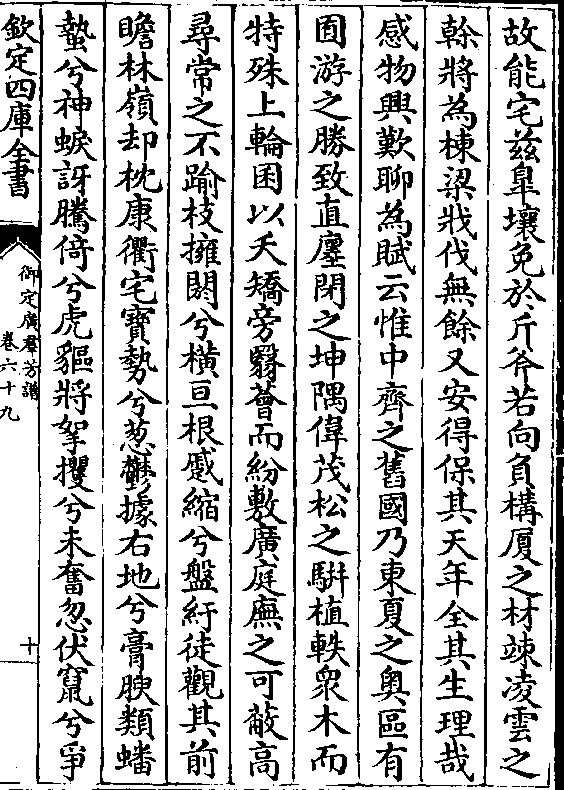 故能宅兹臯壤免於斤斧若向負構厦之材竦凌雲之
榦將為棟梁戕伐無餘又安得保其天年全其生理哉
感物興歎聊為賦云惟中齊之舊國乃東夏之奥區有
囿游之勝致直廛閈之坤隅偉茂松之駢植軼衆木而
特殊上輪囷以夭矯旁翳薈而紛敷廣庭廡之可蔽高
尋常之不踰枝擁閼兮横亘根蹙縮兮盤紆徒觀其前
瞻林嶺却枕康衢宅寳勢兮葱鬱據右地兮膏腴類蟠
蟄兮神蜧訝騰倚兮虎貙將拏攫兮未奮忽伏竄兮爭
欽定四庫全書
御定廣羣芳譜
卷六十九
十